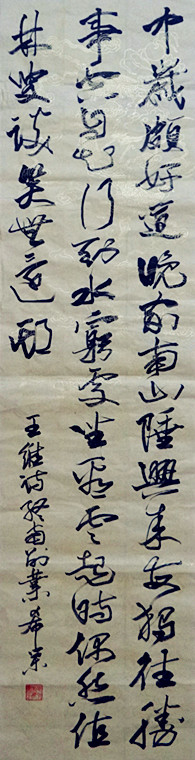 中歲頗好道晚家南山陲興来每獨往勝
事空自知行到水窮處坐看雲起時偶然值
林叟談笑無還期
王維詩終南別業希